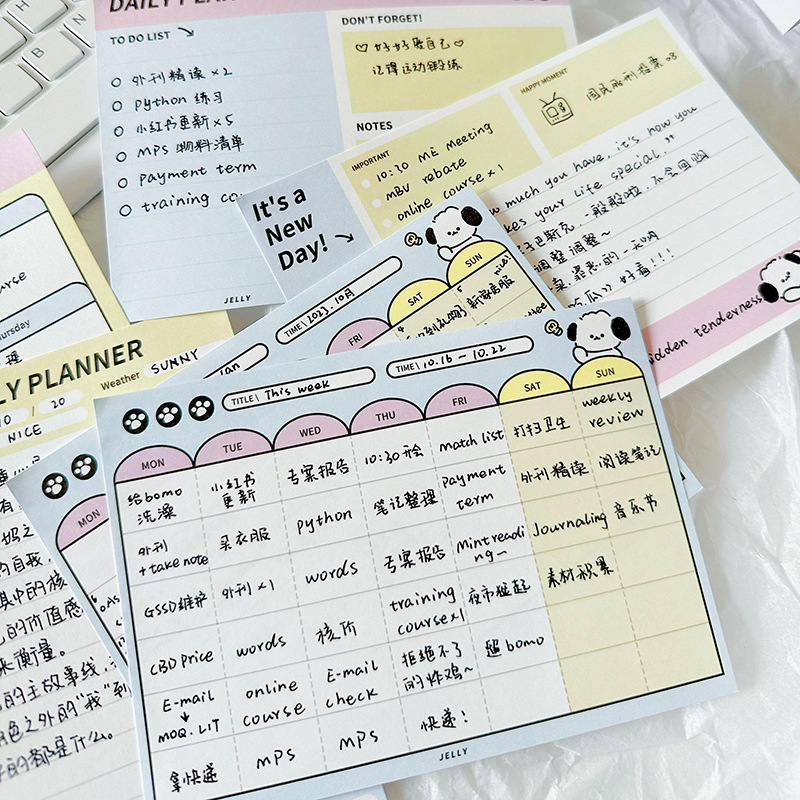 DAILY PLAN
TO DO LIST
外刊精读 ×2
python 练习
小红书更新 ×5
MPS 物料清单
payment term
training co
JELLY
DON'T FORGET!
好好爱自己
记得运动锻炼
NOTES
IMPORTANT
10:30 ME Meeting
MBV rebate
online course ×1
HAPPY MOMENT
It's a
New
Day!
much you have, it's how you
kes your life special."
巴斯克,一般般啦,不会回购
调整调整~
好看!!!
dden tenderness
LY PLANNER
Weather SUNNY
10 / 20
NICE
urse
ursday
的自我,
的价值感
来衡量。
的主故事线,
色之外的"我"到
的都是什么。
MON
TIME 2023.10月
FRI
SAT
SUN
TITLE This week
TIME 10.16 - 10.22
MON
TUE
WED
THU
FRI
SAT
SUN
给bomo
洗澡
小红书
更新
专案报告
10:30开会
match list
打扫卫生
weekly
review
外刊
+take note
买衣服
python
笔记整理
payment
term
外刊精读
阅读笔记
GSSD维护
外刊 ×1
words
专案报告
Mintreadi
ng~
Journaling
音乐节
CBD Price
words
核价
training
course×1
夜市逛起
素材积累
E-mail
↓
MOQ. LIT
online
course
E-mail
check
拒绝不了
的炸鸡~
遛bomo
拿快递
MPS
MPS
快递!
JELLY